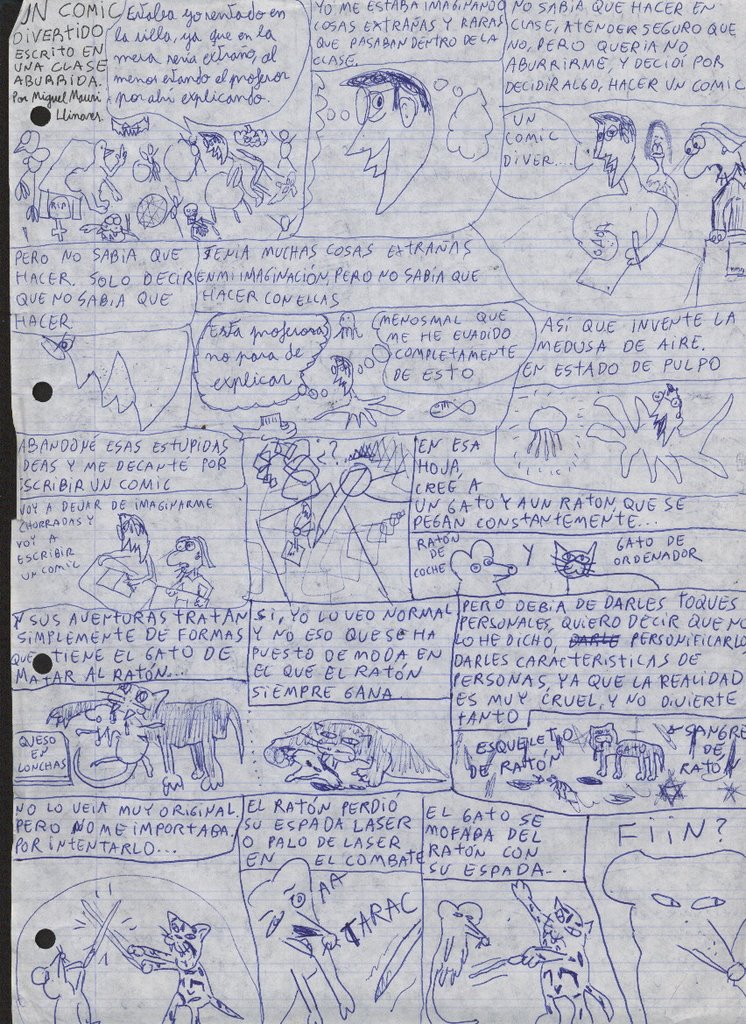 UN COMIC
DIVERTIDO
ESCRITO EN
UNA CLASE
ABURRIDA.
Por Miguel Mauri
Llinares.
Estaba yo sentado en
la silla, ya que en la
mesa seria extraño, al
menos estando el profesor
por ahi explicando.
RIP
YO ME ESTABA IMAGINANDO
COSAS EXTRAÑAS Y RARAS
QUE PASABAN DENTRO DE LA
CLASE.
NO SABIA QUE HACER EN
CLASE, ATENDER SEGURO QUE
NO, PERO QUERIA NO
ABURRIRME, Y DECIDI POR
DECIDIR ALGO, HACER UN COMIC
UN
COMIC
DIVER...
PERO NO SABIA QUE
HACER. SOLO DECIR
QUE NO SABIA QUE
HACER
TENIA MUCHAS COSAS EXTRAÑAS
EN MI IMAGINACIÓN, PERO NO SABIA QUE
HACER CON ELLAS
Esta profesora
no para de
explicar
MENOSMAL QUE
ME HE EVADIDO
COMPLETAMENTE
DE ESTO
ASÍ QUE INVENTE LA
MEDUSA DE AIRE.
EN ESTADO DE PULPO
ABANDONÉ ESAS ESTUPIDAS
IDEAS Y ME DECANTE POR
ESCRIBIR UN COMIC
VOY A DEJAR DE IMAGINARME
CHORRADAS Y
VOY A
ESCRIBIR
UN COMIC
¿?
EN ESA
HOJA,
CREE A
UN GATO Y A UN RATON, QUE SE
PEGAN CONSTANTEMENTE...
RATÓN
DE
COCHE
Y
GATO DE
ORDENADOR
Y SUS AVENTURAS TRATAN
SIMPLEMENTE DE FORMAS
QUE TIENE EL GATO DE
MATAR AL RATÓN...
QUESO
EN
LONCHAS
SI, YO LO VEO NORMAL
Y NO ESO QUE SE HA
PUESTO DE MODA EN
EL QUE EL RATÓN
SIEMPRE GANA.
PERO DEBIA DE DARLES TOQUES
PERSONALES, QUIERO DECIR QUE NO
LO HE DICHO, DARLE PERSONIFICARLO
DARLES CARACTERISTICAS DE
PERSONAS, YA QUE LA REALIDAD
ES MUY CRUEL, Y NO DIVIERTE
TANTO
ESQUELETO
DE RATÓN
GATO
SANGRE
DE
RATÓN
NO LO VEIA MUY ORIGINAL
PERO NO ME IMPORTABA,
POR INTENTARLO...
EL RATÓN PERDIÓ
SU ESPADA LASER
O PALO DE LASER
EN EL COMBATE
AA
TARAC
EL GATO SE
MOFABA DEL
RATÓN CON
SU ESPADA...
FIIN?